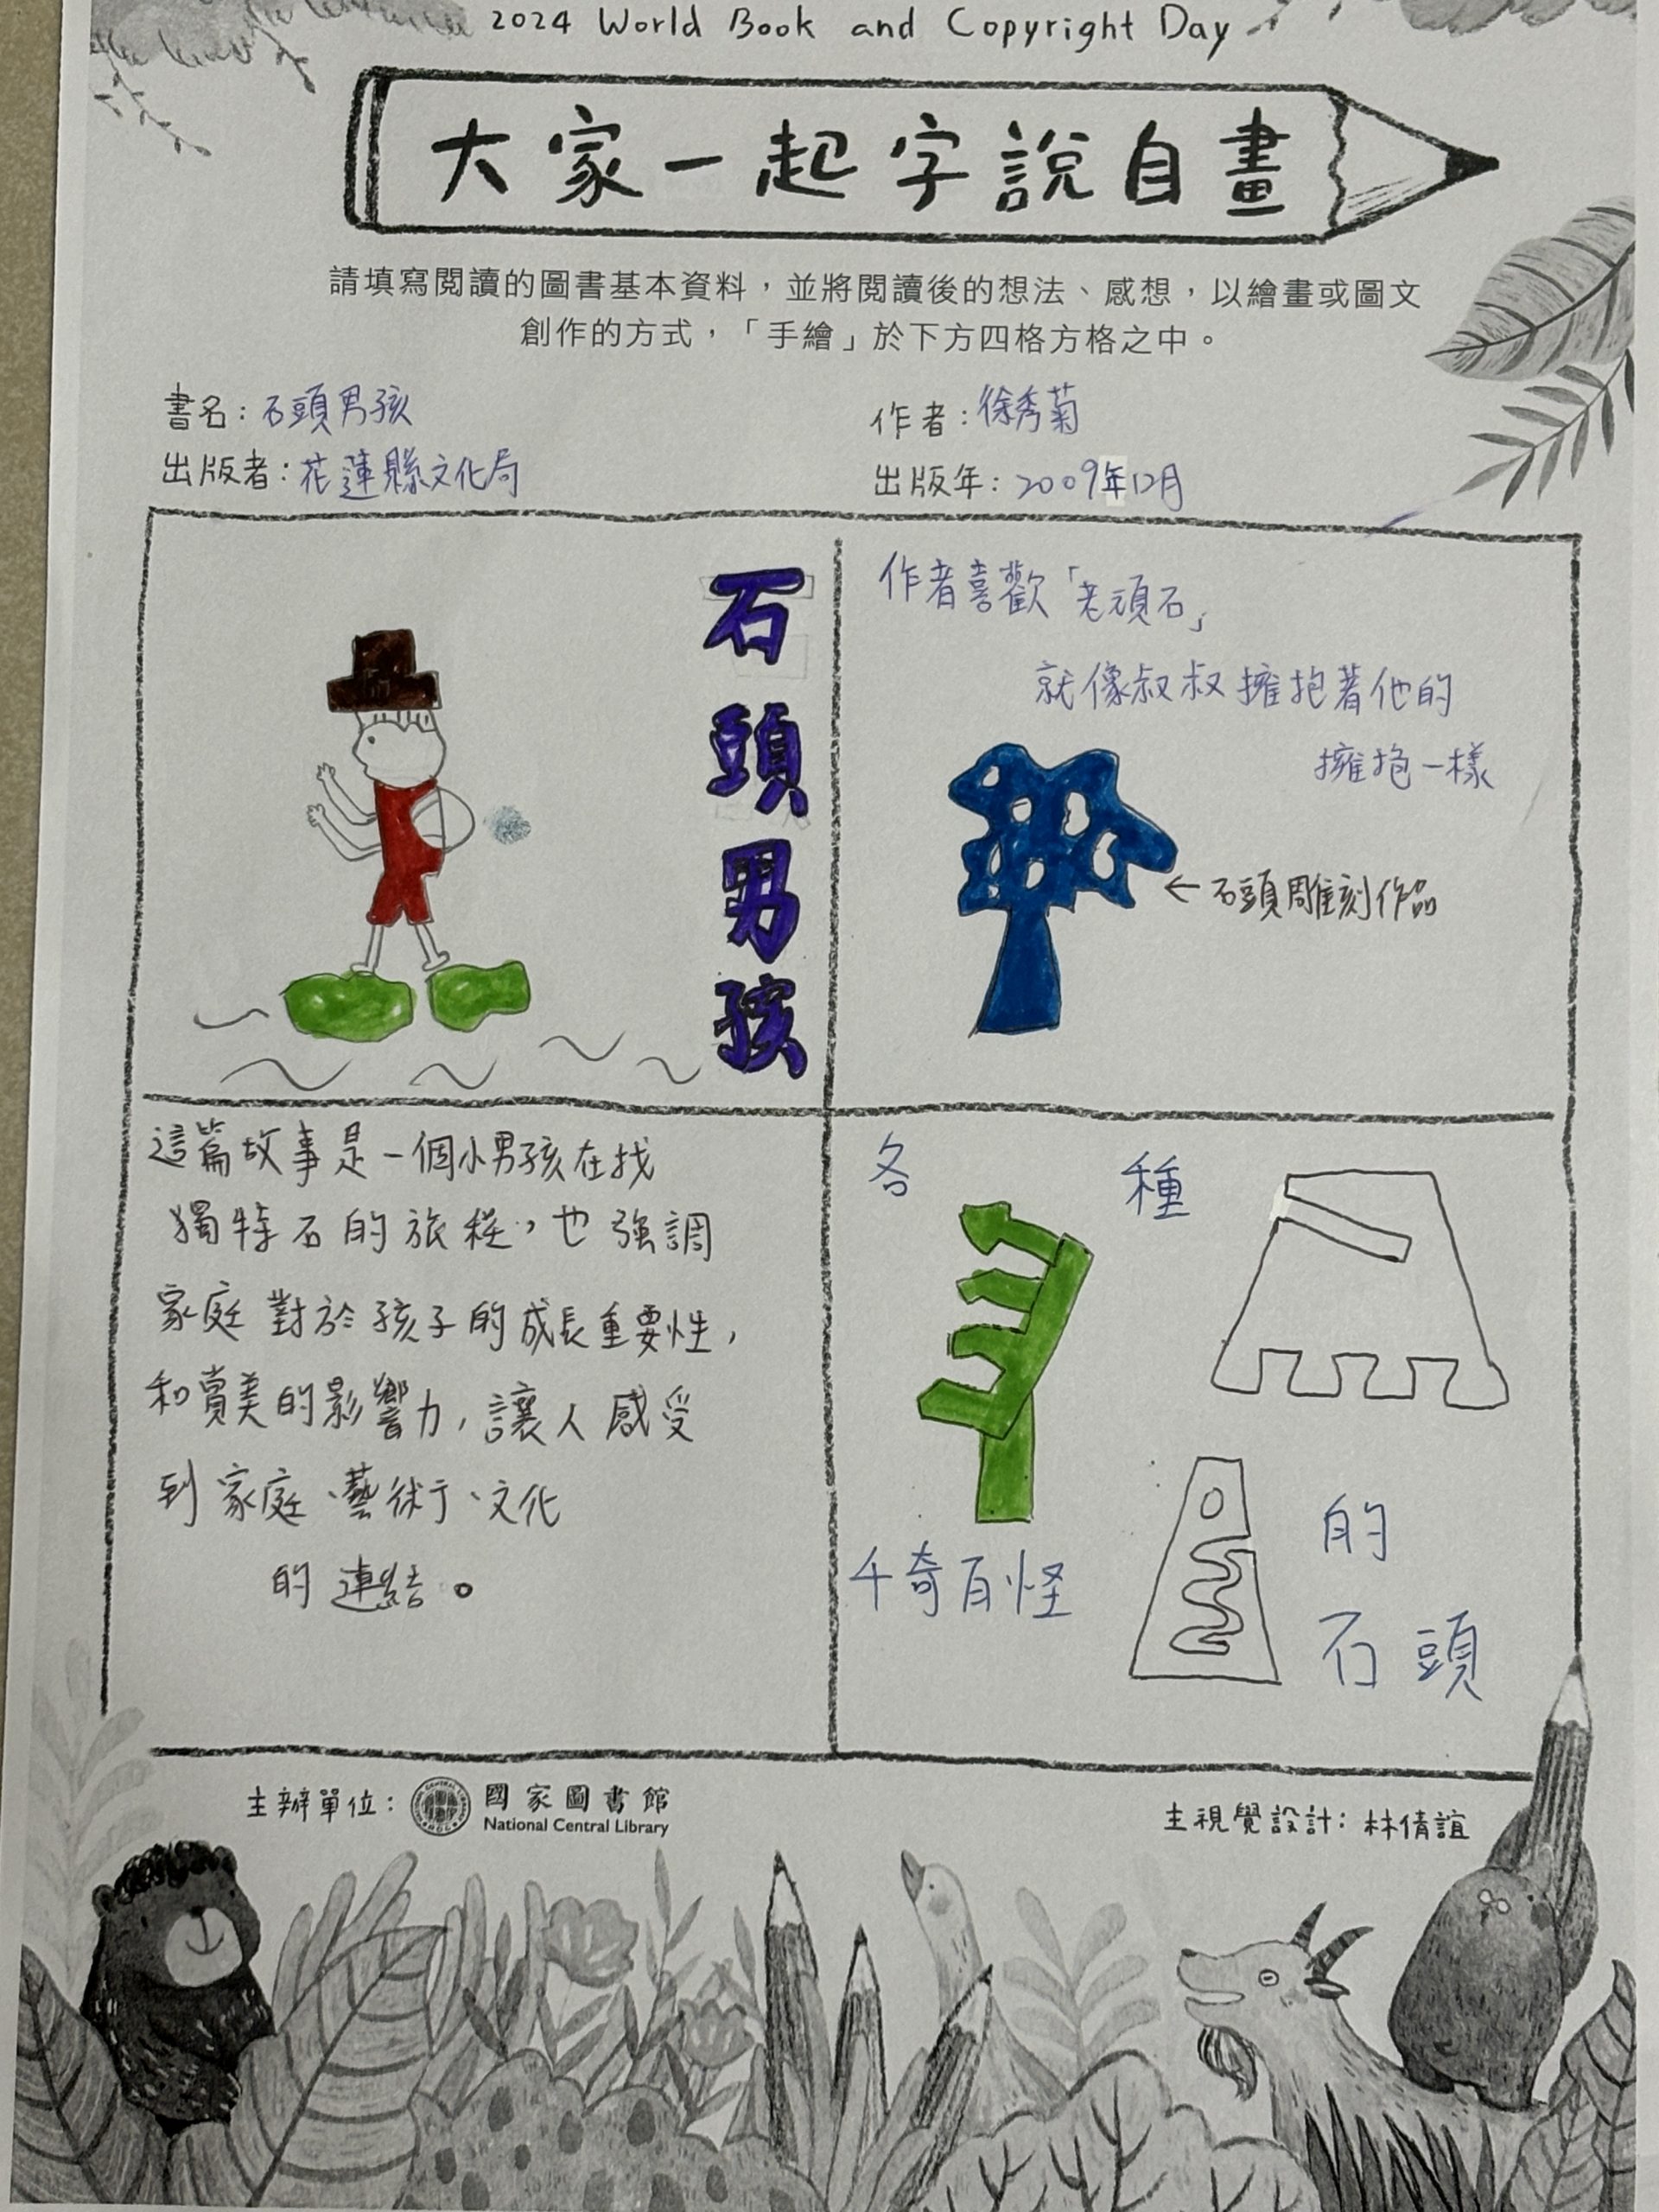 2024 World Book and Copyright Day
大家一起字說自畫
請填寫閱讀的圖書基本資料，並將閱讀後的想法、感想，以繪畫或圖文
創作的方式，「手繪」於下方四格方格之中。
書名：石頭男孩
作者：徐秀菊
出版者：花蓮縣文化局
出版年：2009年12月
石頭男孩
作者喜歡「老頑石」
就像叔叔擁抱著他的
擁抱一樣
←石頭雕刻作品
這篇故事是一個小男孩在找
獨特石的旅程，也強調
家庭對於孩子的成長重要性，
和賞美的影響力，讓人感受
到家庭、藝術、文化
的連結。
各種
千奇百怪
的
石頭
主辦單位：國家圖書館
National Central Library
主視覺設計：林倩誼